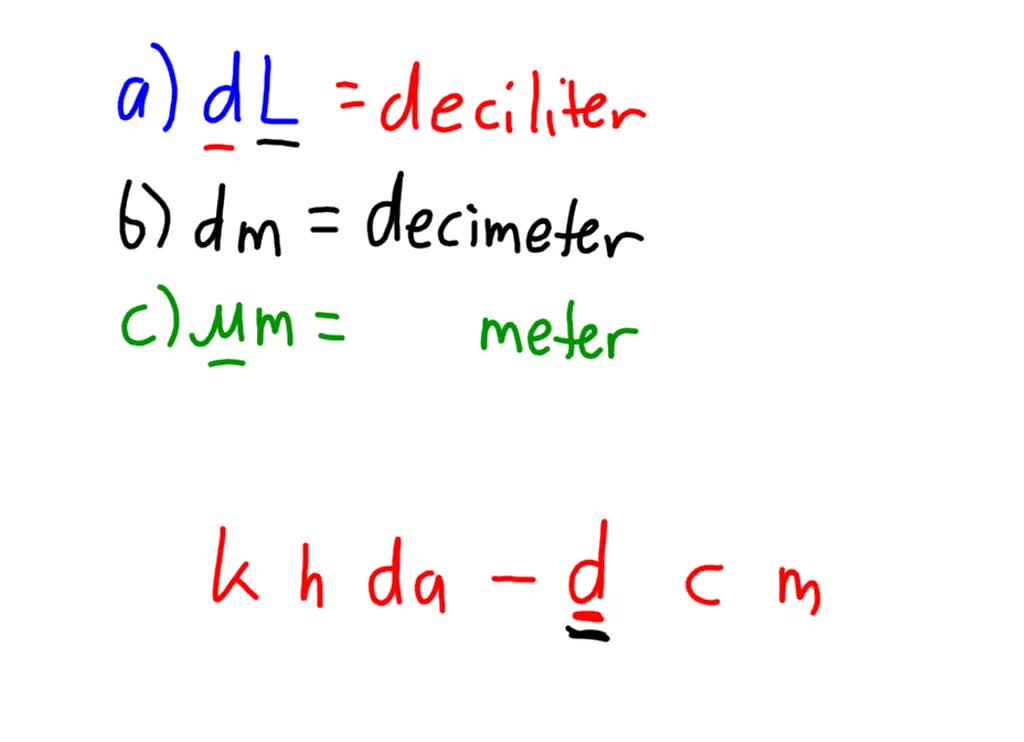 a) dL = deciliter
b) dm = decimeter
c) μm = meter
k h da - d c m